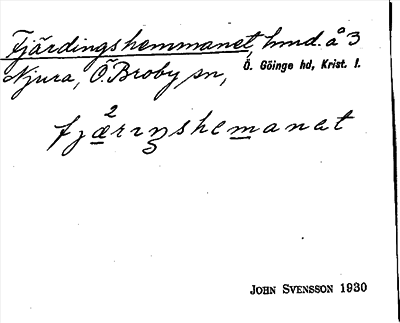 Fjärdingshemmanet, hmd. å 3
Njura, Ö. Broby sn, Ö. Göinge hd, Krist. l.
2
fjæriŋshemanat
JOHN SVENSSON 1930